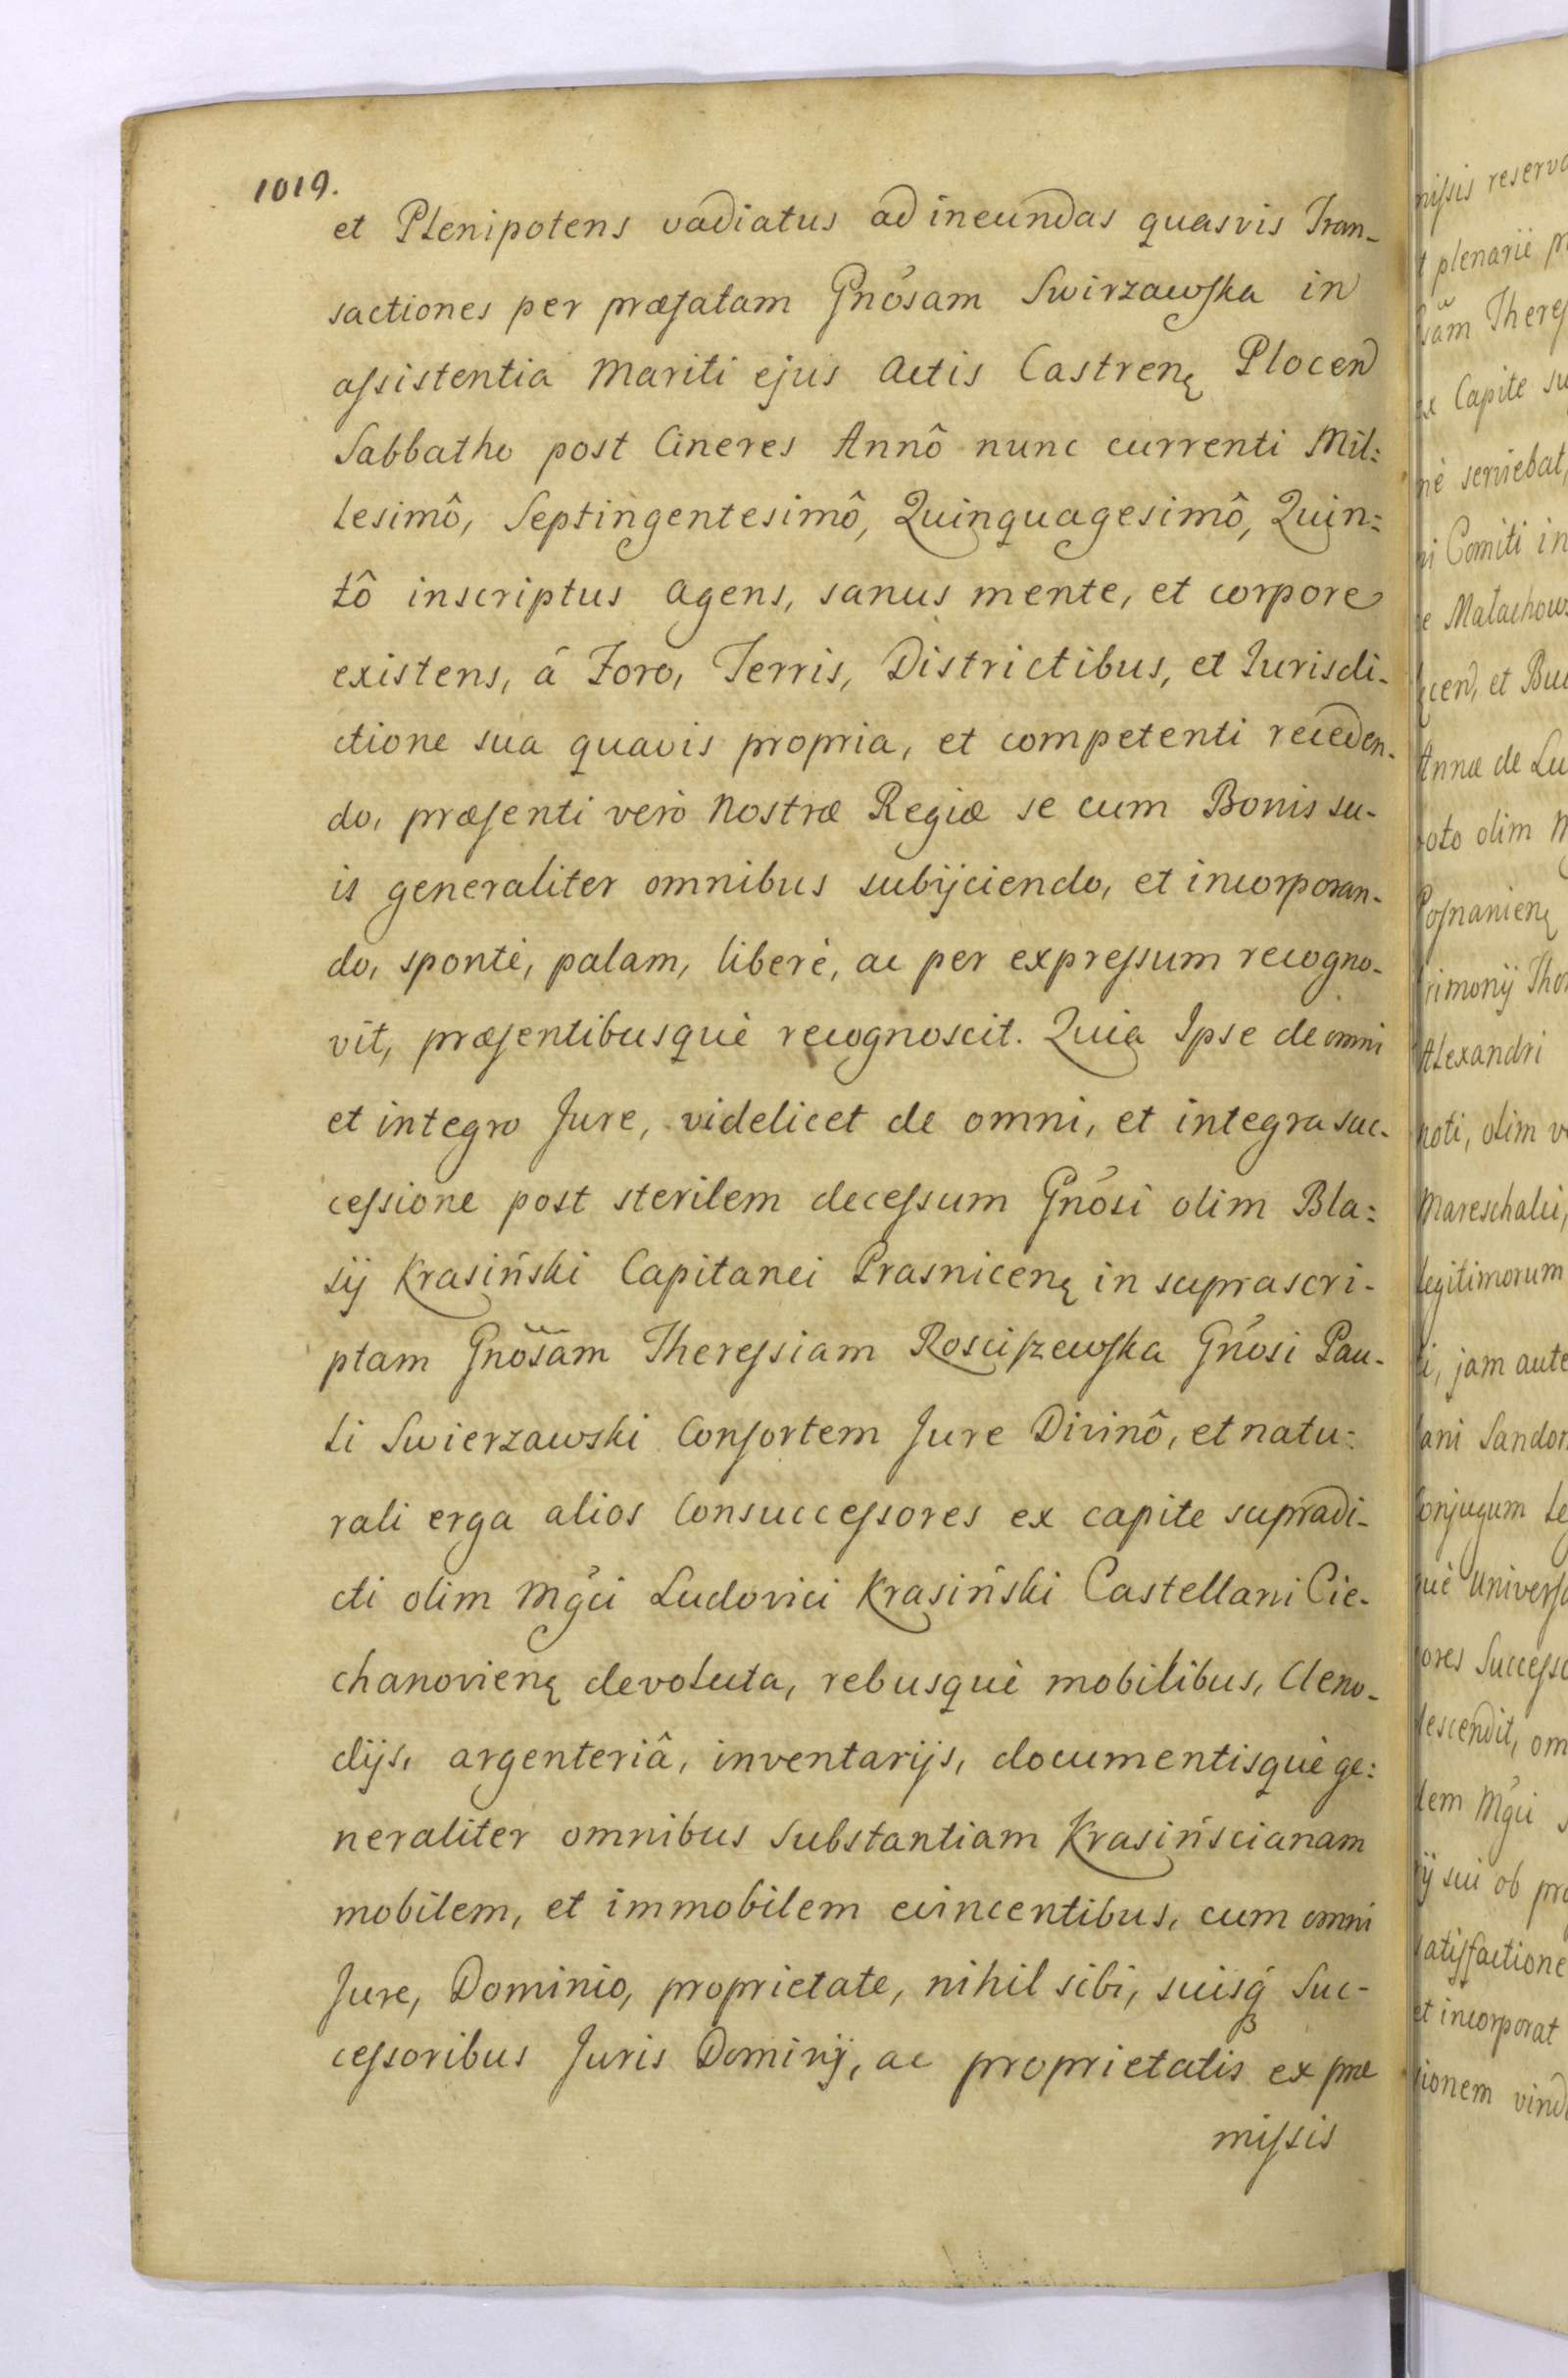 1019.
et Plenipotens vadiatus ad ineundas quasvis Tran-
sactiones per præfatam Gnosam Swirzawska in
assistentia Mariti ejus Actis Castrenę Plocen
Sabbatho post Cineres Annô nunc currenti Mil:
lesimô, Septingentesimô, Quinquagesimô, Quin:
tô inscriptus agens, sanus mente, et corpore
existens, â Foro, Terris, Districtibus, et Iurisdi-
ctione sua quavis propria, et competenti receden-
do, præsenti verò Nostræ Regiæ se cum Bonis su-
is generaliter omnibus subijciendo, et incorporan-
do, spontè, palam, liberè, ac per expressum recogno-
vit, præsentibusquè recognoscit. Quia Ipse de omni
et integro Jure, videlicet de omni, et integra suc-
cessione post sterilem decessum Gnosi olim Bla:
sij Krasiński Capitanei Prasnicenę in suprascri-
ptam Gnosam Theressiam Rosciszewska Gnosi Pau-
li Swierzawski Consortem Jure Divinô, et natu:
rali erga alios Consuccessores ex capite supradi-
cti olim Mgci Ludovici Krasiński Castellani Cie-
chanovienę devoluta, rebusquè mobilibus, Cleno-
dijs, argenteriâ, inventarijs, documentisquè ge:
neraliter omnibus Substantiam Krasińscianam
mobilem, et immobilem evincentibus, cum omni
Jure, Dominio, proprietate, nihil sibi, suisq́ Suc-
cessoribus Juris Dominij, ac proprietatis ex præ
missis
missis
plenarie
Capite
serviebat,
Comiti in
et
Annæ de
olim
Posnanienę
Alexandri
olim
Mareschalci,
legitimorum
jam
Conjugum
descendit,
Mgci
sui ob
satisfactione
et incorporat